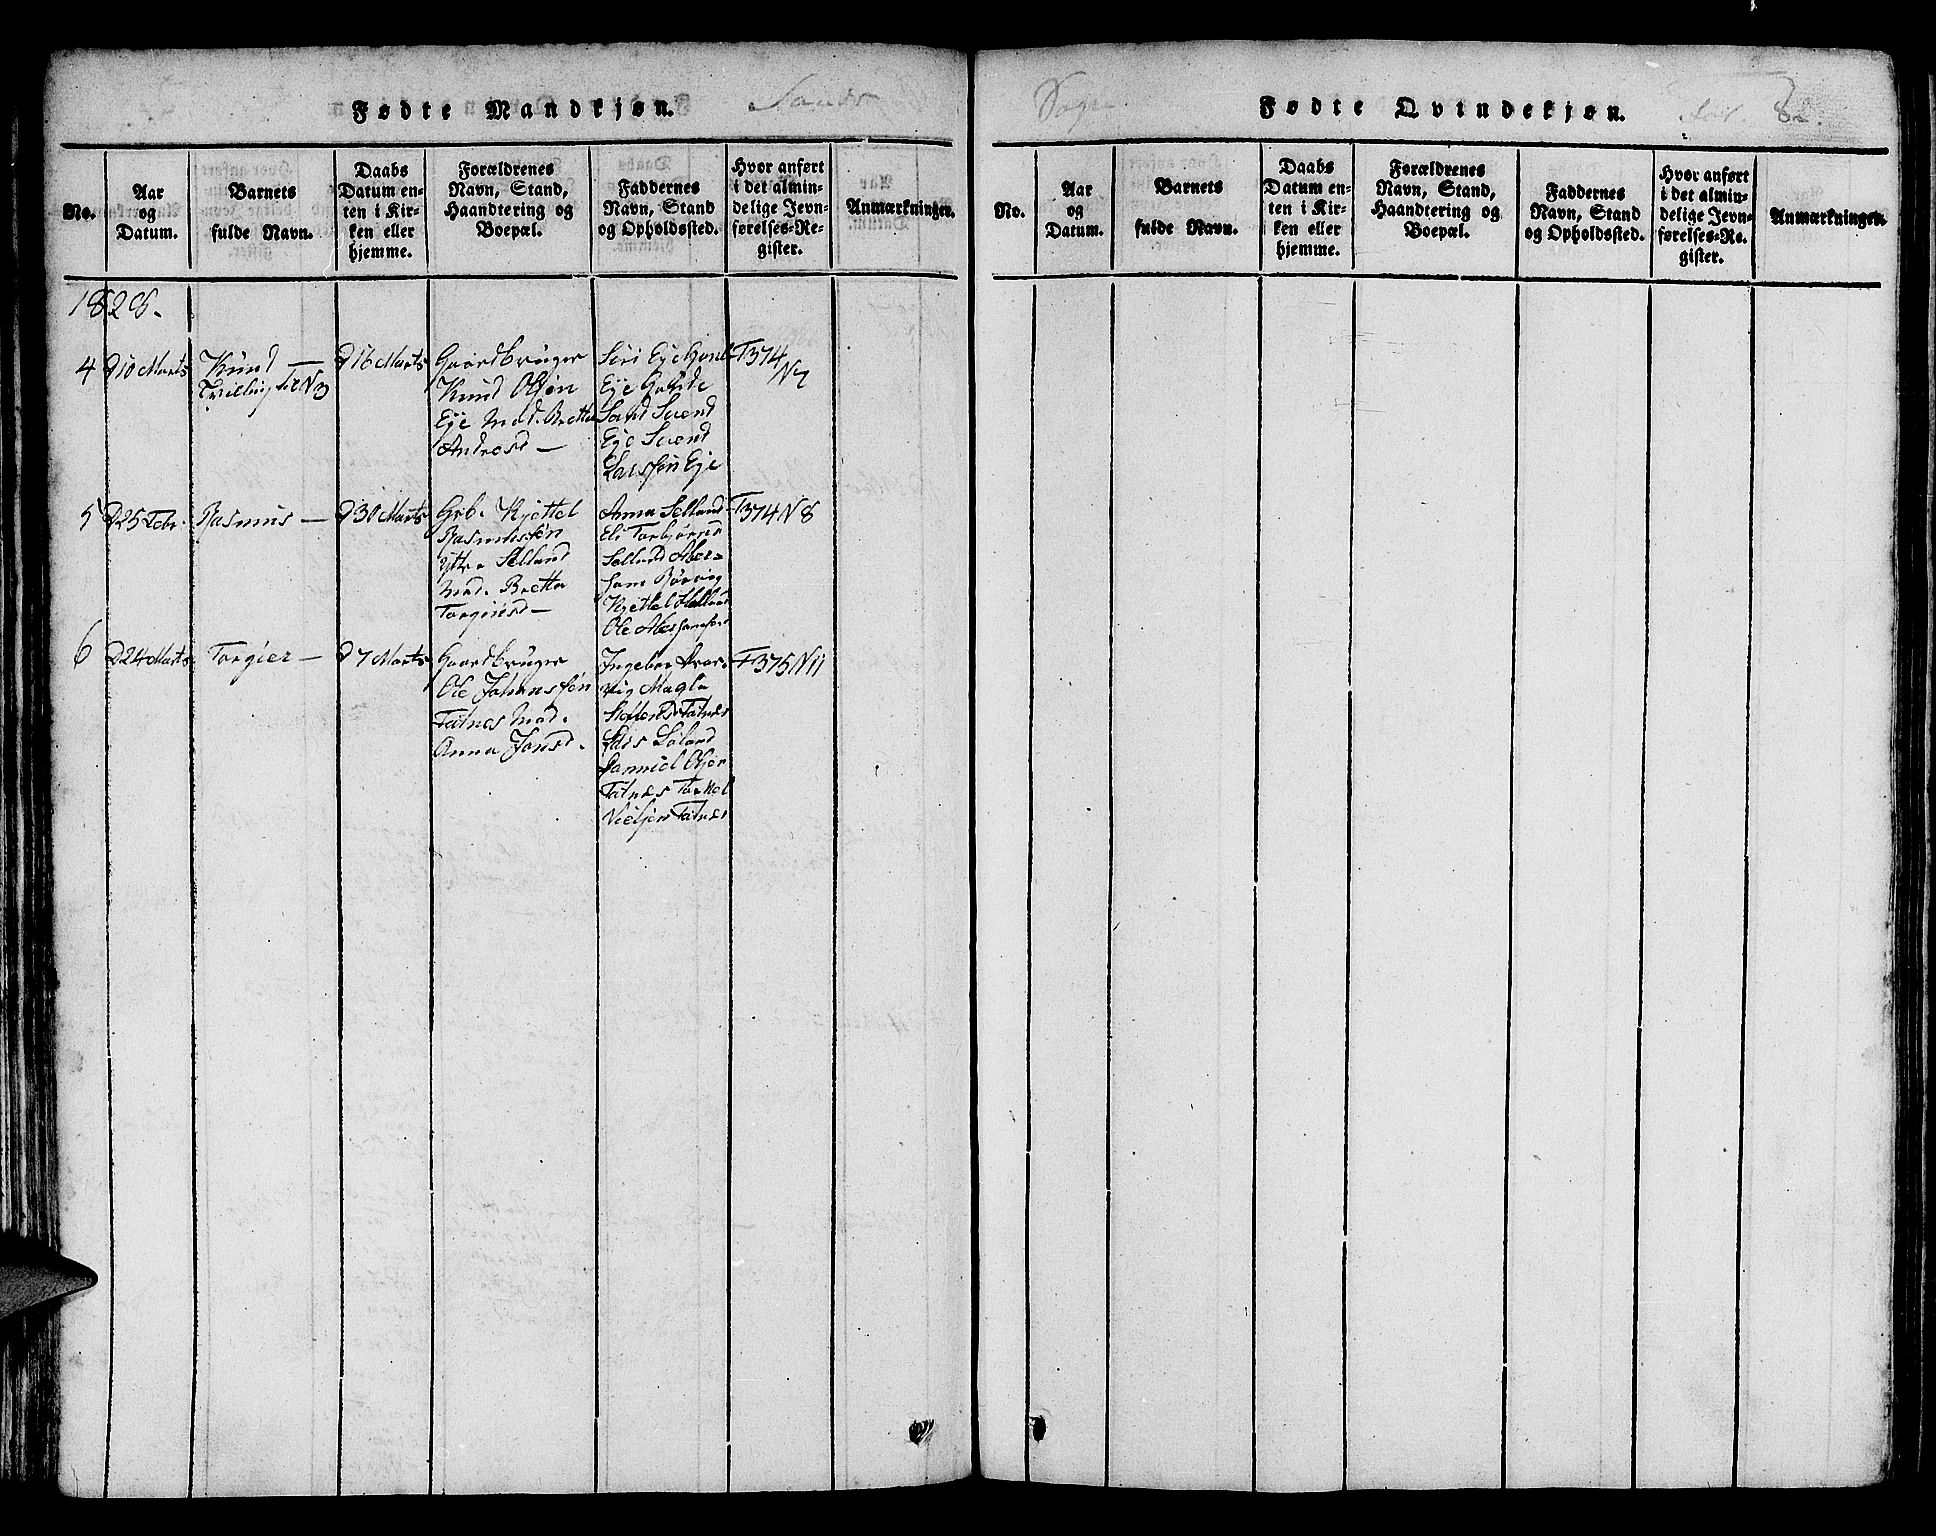 Fødte Mandkjøn. Sands
No.
Aar
og
Datum.
Barnets
fulde Navn.
Daabs
Datum en-
ten i Kir-
ken eller
hjemme.
Forældrenes
Navn, Stand,
Haandtering og
Boepæl.
Faddernes
Navn, Stand
og Opholdssted.
Hvor anført
i det almin-
delige Jevn-
førelses-Re-
gister.
Anmærkninger.
1828.
4
D 10 Marts
Knud —
Tvilling til N3
D 16 Marts
Gaardbruger
Knud Olsøn
Eje Mod. Bretta
Andrasd —
Siri Eje
Eje
Sand Svend
Eje Svend
Larssøn Eje
F 374
N 7
5
D 25 Febr.
Rasmus —
D 30 Marts
Grb. Kjettel
Rasmussøn
yttre Selland
Mod. Bretta
Torgersd —
Anna Selland
Eli Torbjørnsd
Selland Aber-
ham
Kjettel Helland
Ole
F 374 N 8
6
D 24 Marts
Torgier —
D 7 Marts
Gaardbruger
Ole Johanssøn
Tatnes Mod.
Anna Jonsd.
Ingebor Drar-
vig Magla
Steffensd Tatnes
Lars Løland
Danniel Olsøn
Tatnes Torkel
Nieljsøn Tatnes
F 375 N 11
Sogn Fødte Qvindekjøn. Fol. 82.
No.
Aar
og
Datum.
Barnets
fulde Navn.
Daabs
Datum en-
ten i Kir-
ken eller
hjemme.
Forældrenes
Navn, Stand,
Haandtering og
Boepæl.
Faddernes
Navn, Stand
og Opholdssted.
Hvor anført
i det almin-
delige Jevn-
førelses-Re-
gister.
Anmærkninger.